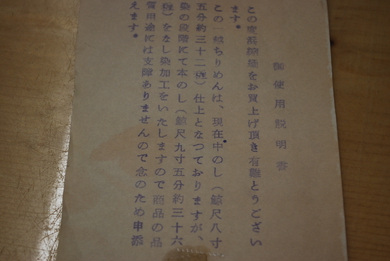 御使用説明書
この度製品をお買上げ頂き有難とうござい
ます。
この一越ちりめんは、現在中のし(鯨尺八寸
五分約三十二糎)仕上となつておりますが、
染の段階にて本のし(鯨尺九寸五分約三十六
糎)をなし染加工をいたしますので商品の品
質用途には支障ありませんので念のため申添
えます。